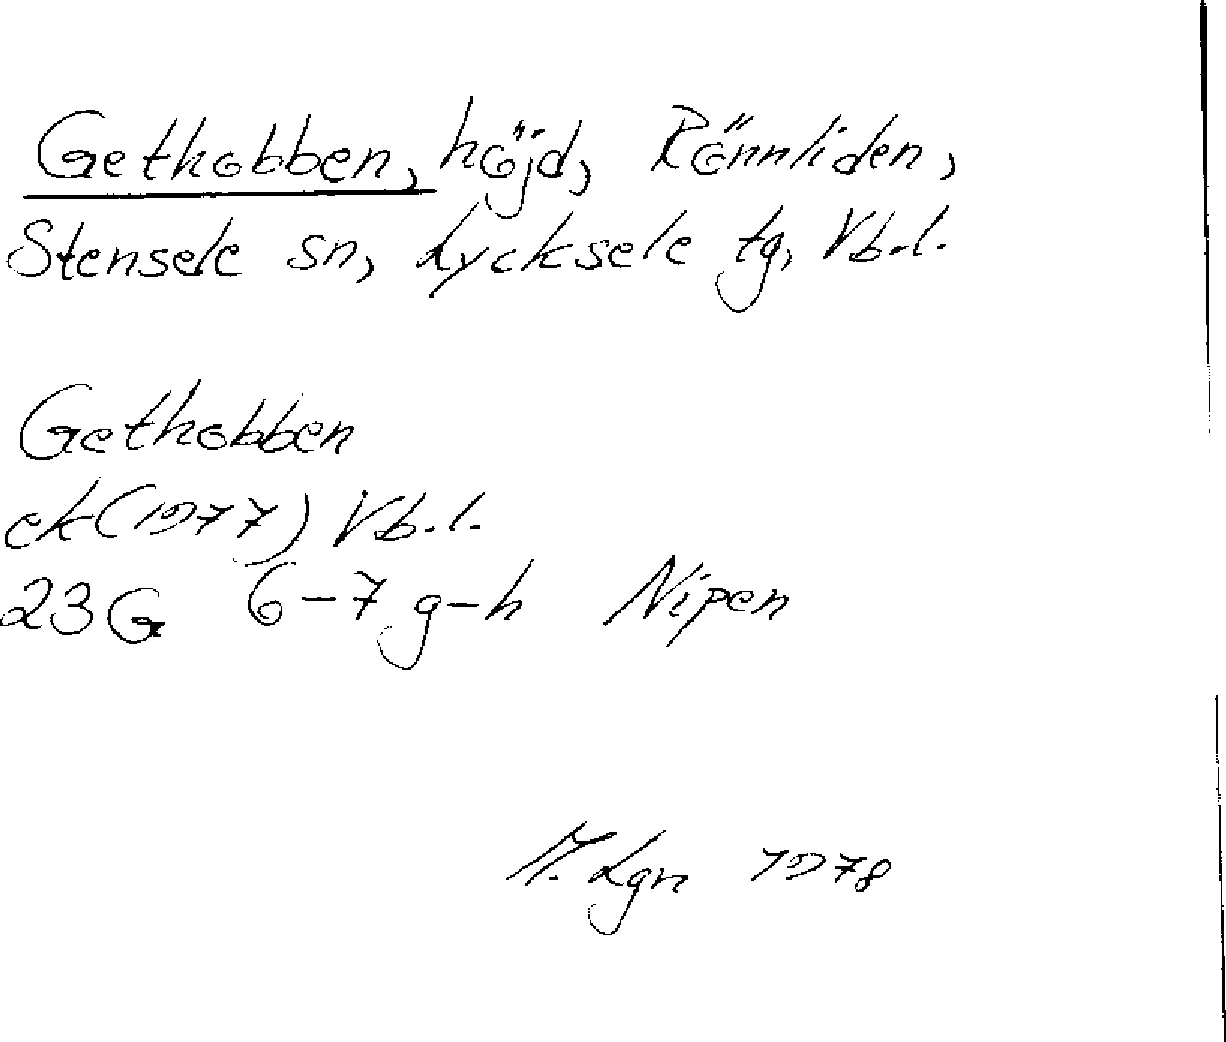 Gethobben, höjd, Rönnliden,
Stensele sn, Lycksele tg, Vb.l.
Gethobben
ek (1977) Vb.l.
23G 6-7 g-h Nipen
Lgn 1978